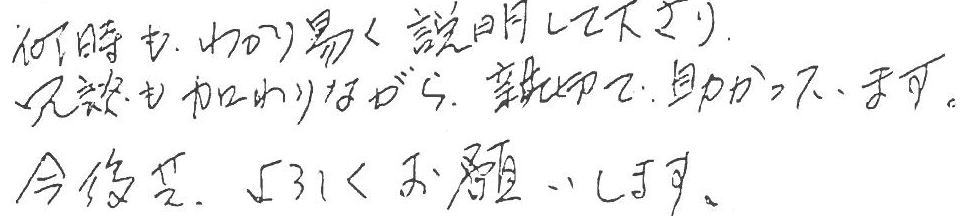 何時も、わかり易く説明して下さり、
冗談も加わりながら、親切で、助かっています。
今後共、よろしくお願いします。